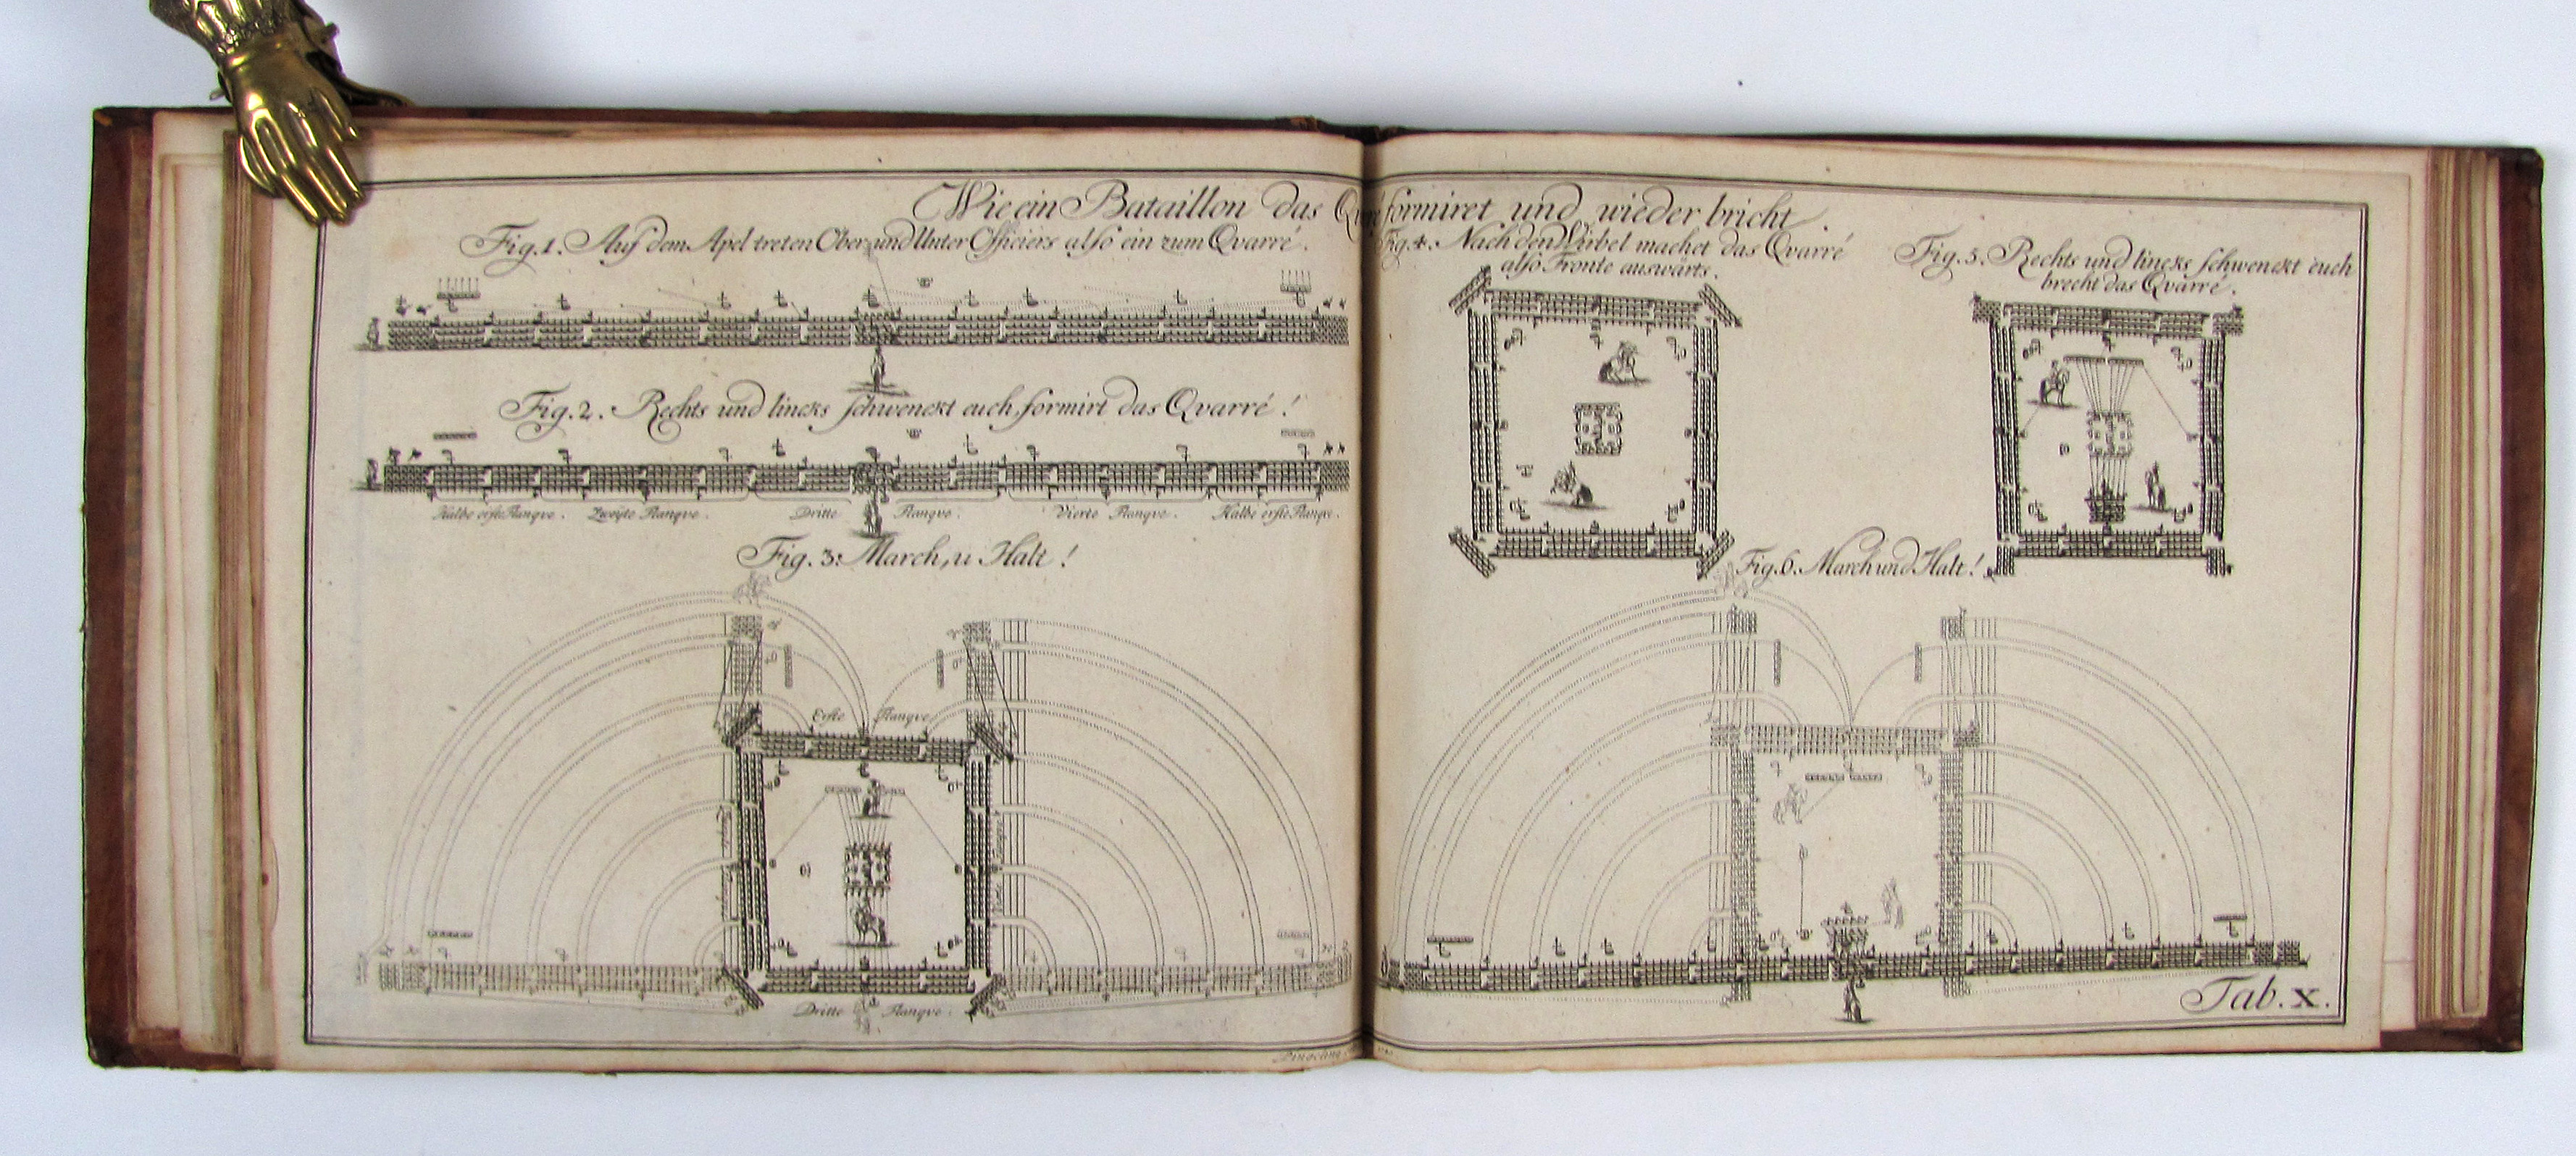 Wie ein Bataillon das Qvarré formiret und wieder bricht.
Fig. 1. Auf dem Apel treten Ober- und Unter Officiers also ein zum Qvarré.
Fig. 2. Rechts und lincks schwenckt euch, formirt das Qvarré!
Halbe erste Flanqve. Zweyte Flanqve. Dritte Flanqve. Vierte Flanqve. Halbe erste Flanqve.
Fig. 3. March, u Halt!
Erste Flanqve
Vierte Flanqve
Dritte Flanqve.
Fig. 4. Nach den Wirbel machet das Qvarré
also Fronte auswärts.
Fig. 5. Rechts und lincks schwenckt euch
brecht das Qvarré.
Fig. 6. March und Halt!
Tab. X.